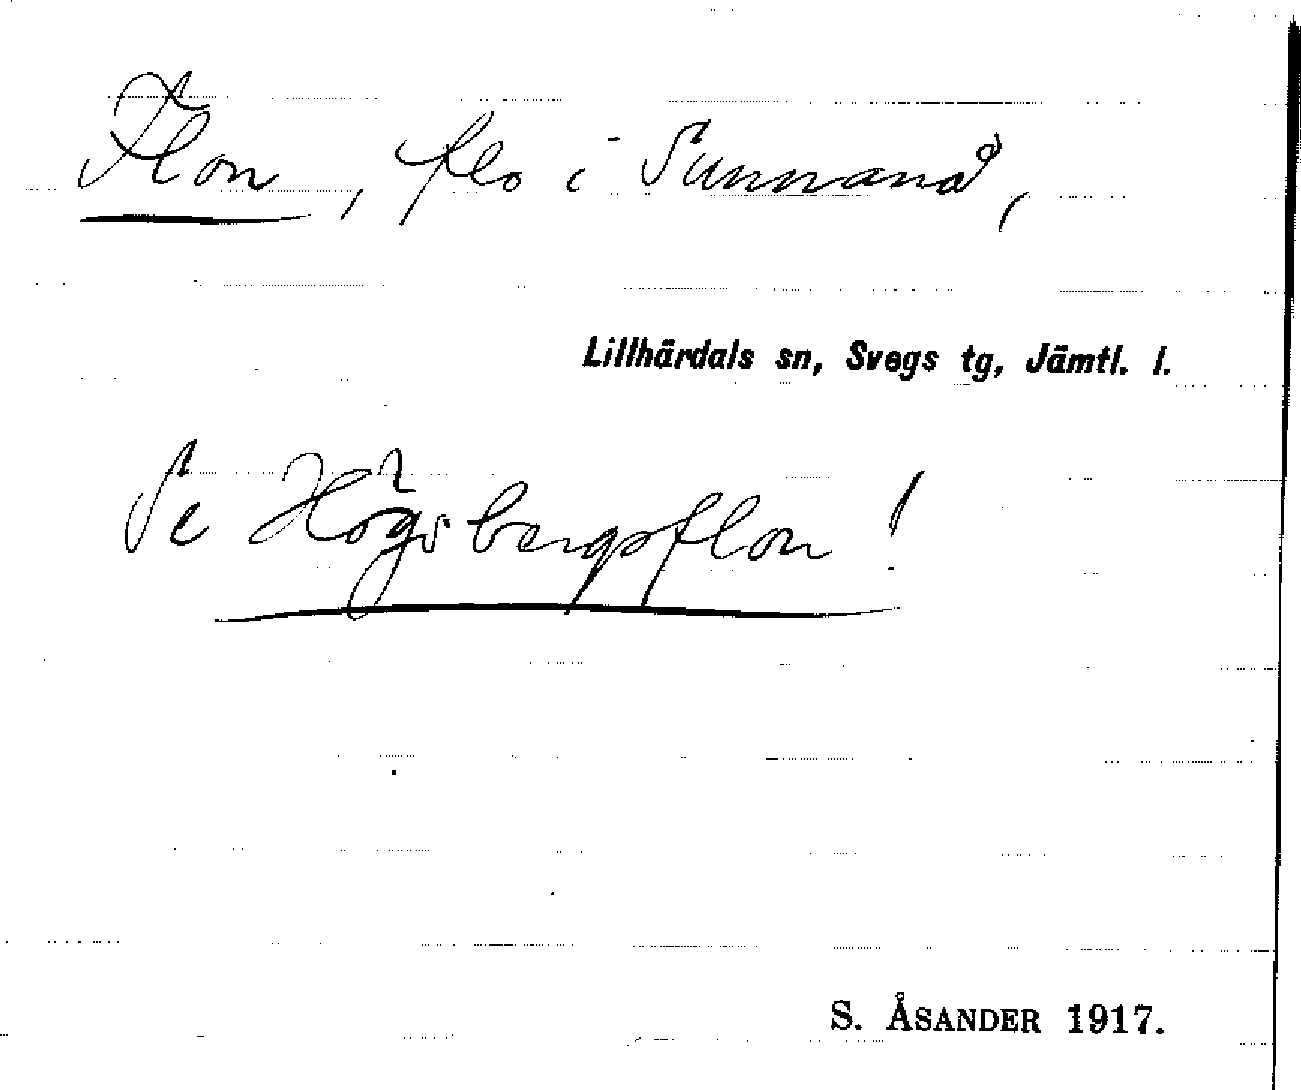 Flon, flo i Sunnanå,
Lillhärdals sn, Svegs tg, Jämtl. l.
Se Högsbergsflon!
S. ÅSANDER 1917.